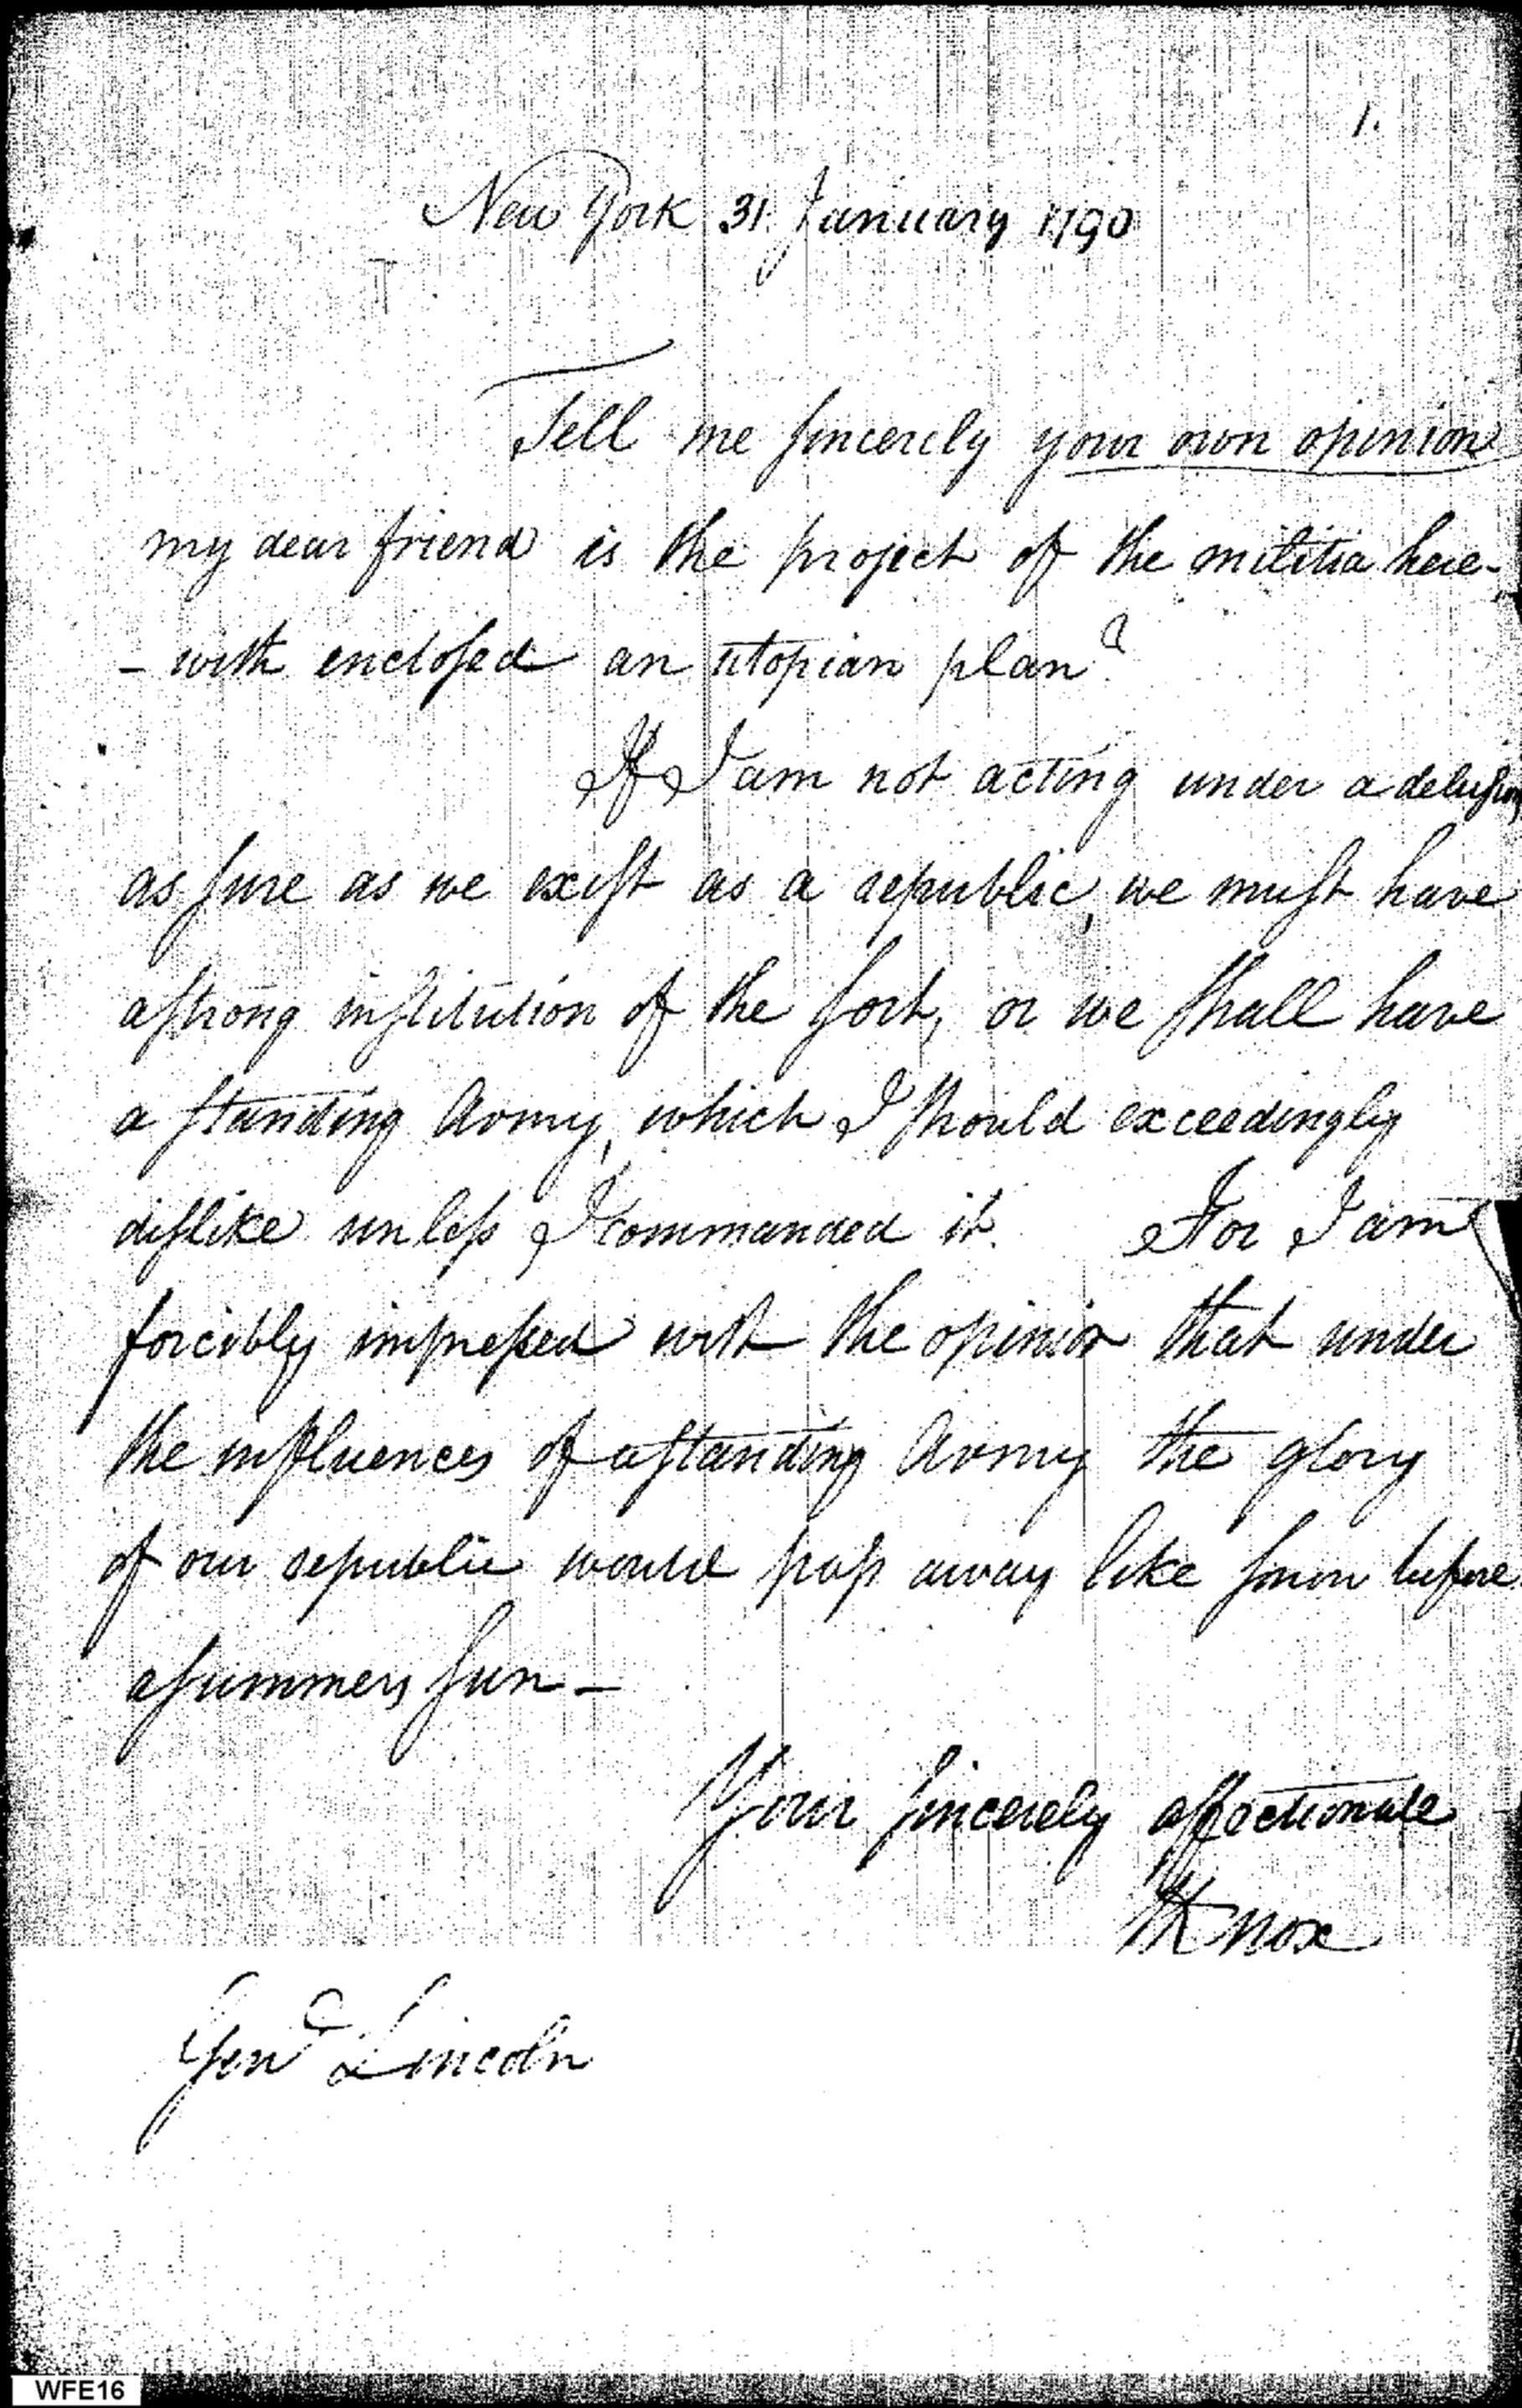 1.
New York 31 January 1790
Tell me sincerely your own opinion
my dear friend is the project of the militia here-
- with enclosed an utopian plan?
If I am not acting under a delusion,
as sure as we exist as a republic, we must have
a strong institution of the sort, or we shall have
a standing Army, which I should exceedingly
dislike unless I commanded it. For I am
forcibly impressed with the opinion that under
the influences of a standing Army the glory
of our republic would pass away like snow before
a summers sun -
Your sincerely affectionate
HKnox
Genl Lincoln
WFE16